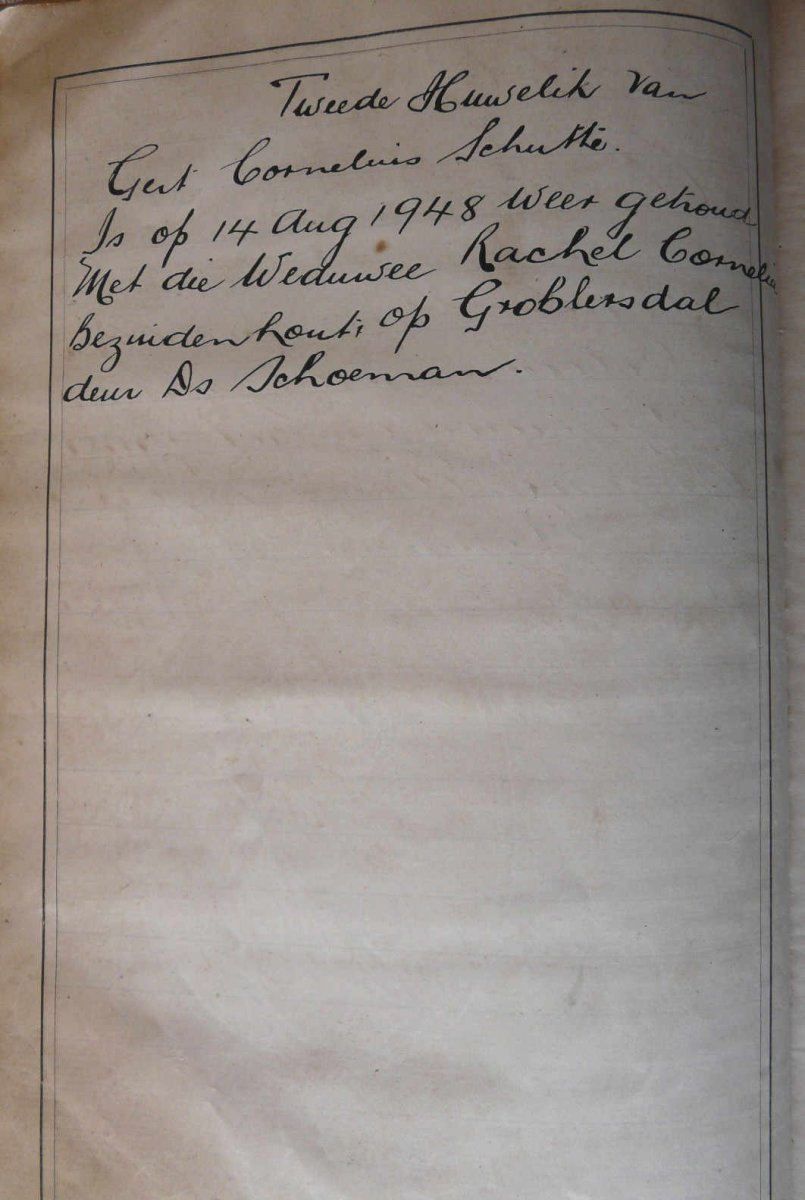 Tweede Huwelik van
Gert Cornelius Schutte.
Is op 14 Aug 1948 weer getroud
Met die Weduwee Rachel Cornelia
Bezuidenhout, op Groblersdal
deur Ds Schoeman.